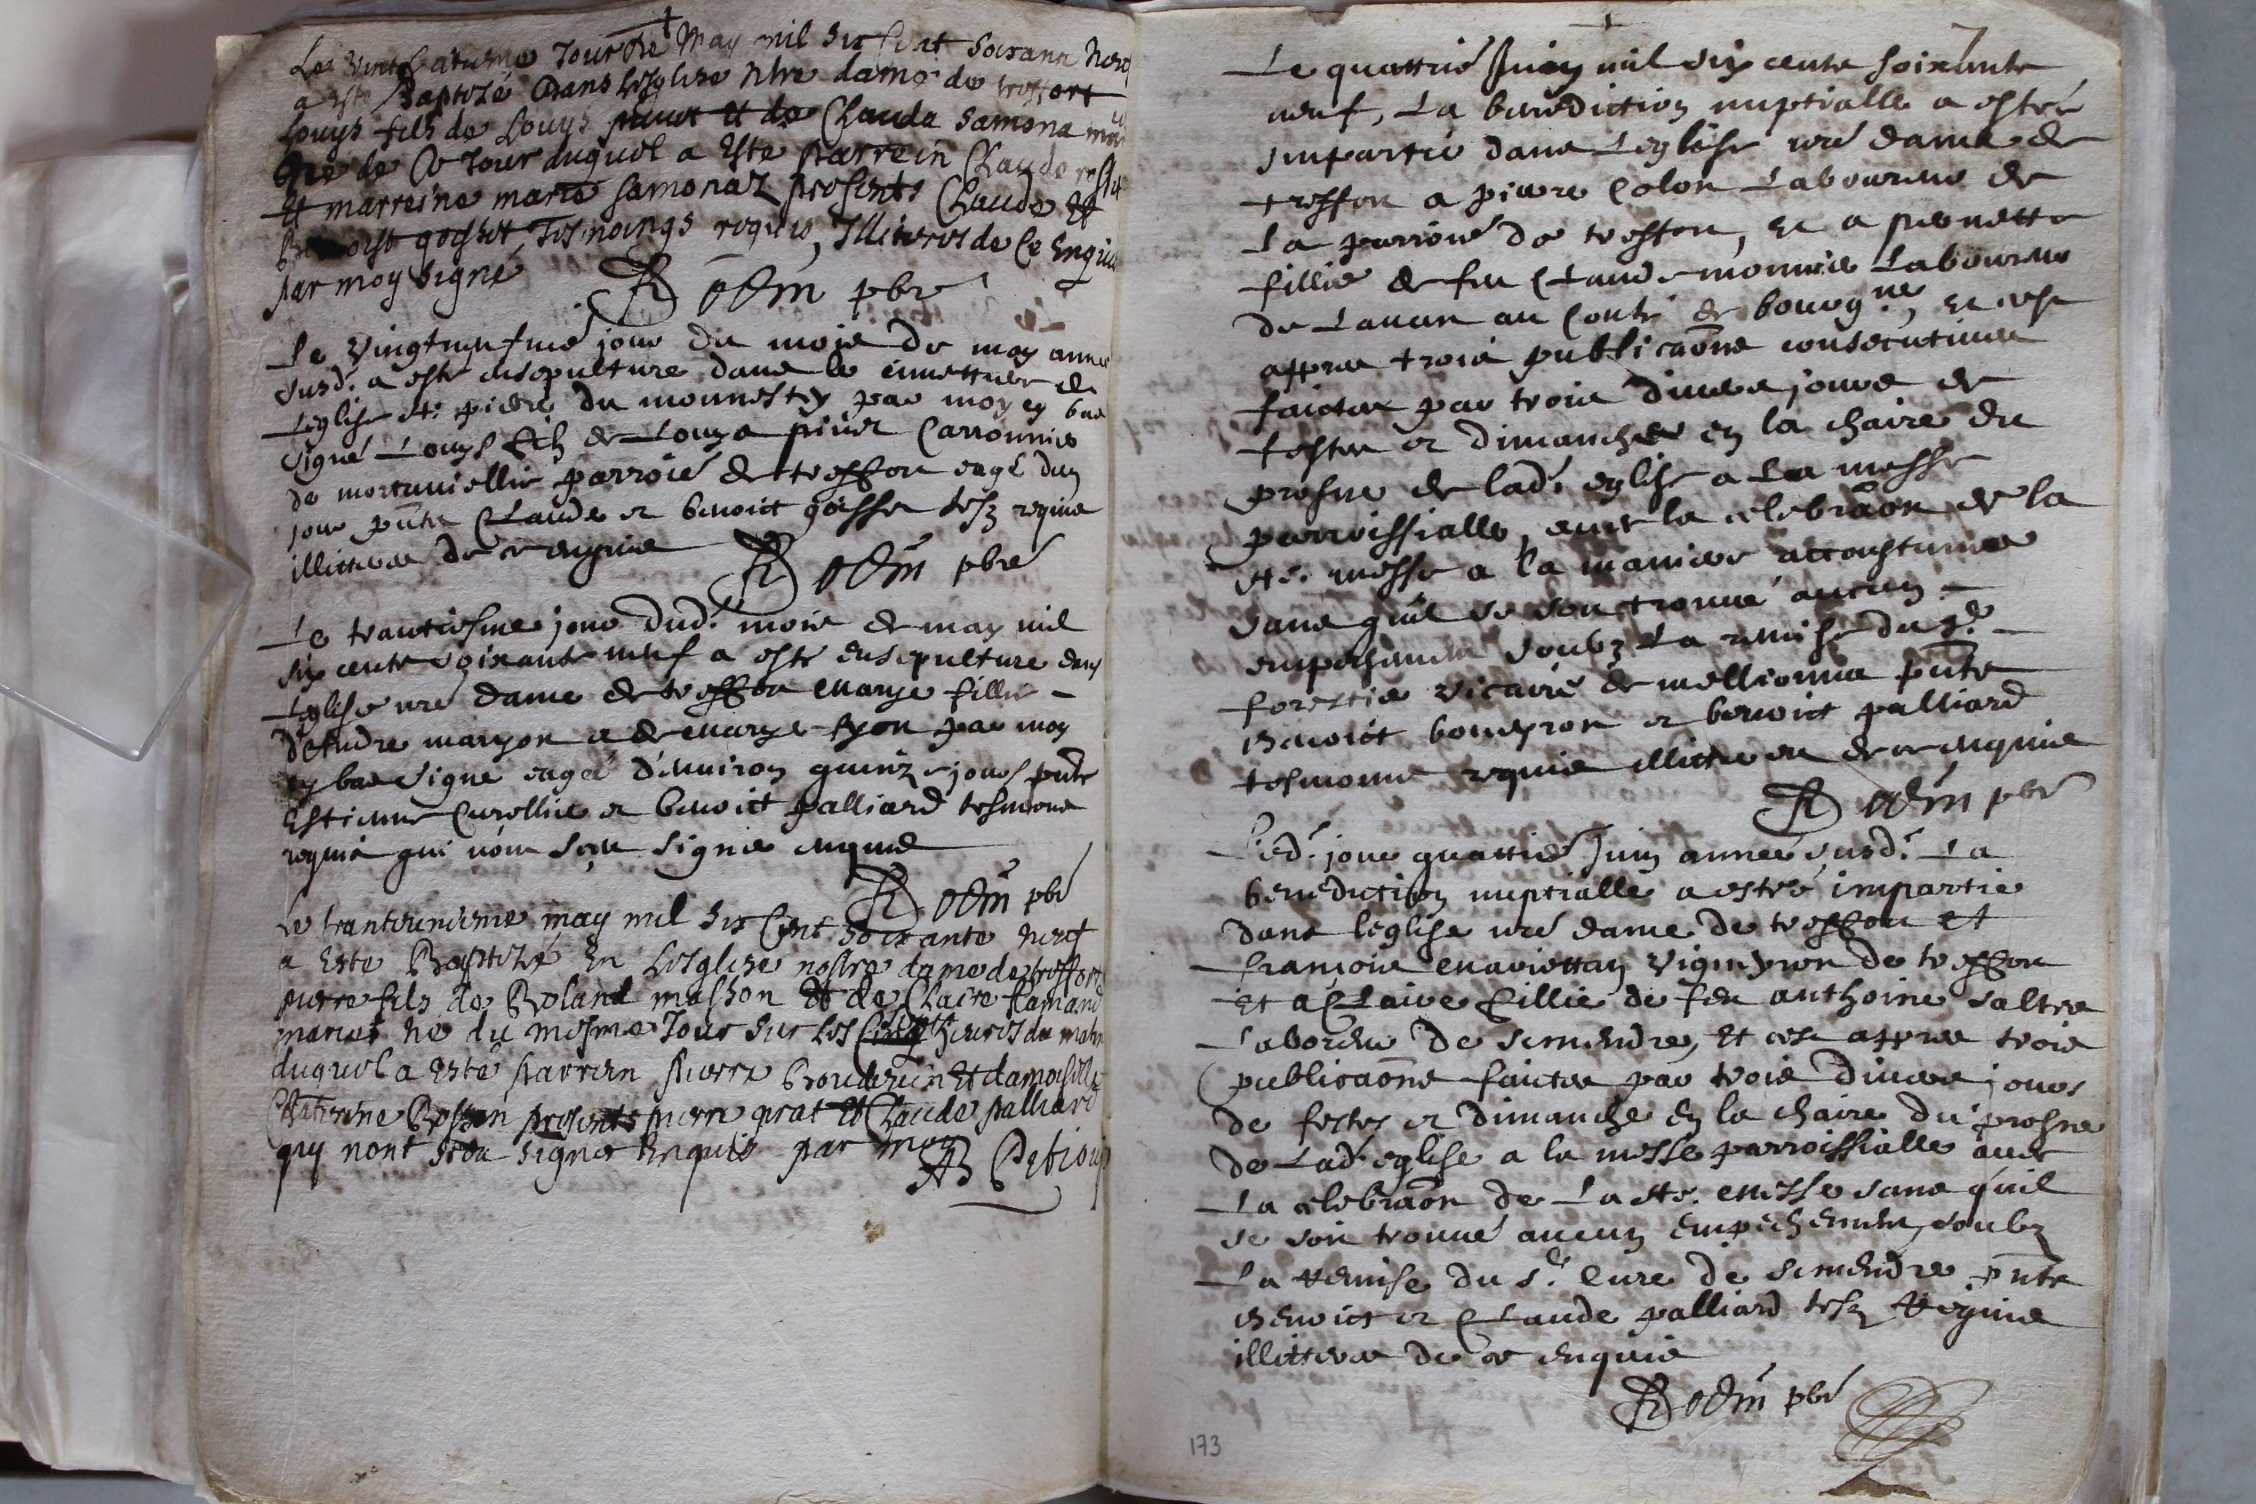 Le vint huitiesme Jour de May mil six Cent soixante neuf
a esté Baptizé Dans Lesglize nrē dame de treffort
Louys fils de Louys pivet et de Clauda Samona
de Ce Jour duquel a Este parrein Claude
Et marreine marie samonaz presents Claude Et
Benoist goshet Tesmoings requis, Illiteres de Ce Enquis
par moy signé R odin pbr̄e
Le vingtneufmē jour du mois de may année
susd. a esté ensepulturé dans le cimettiere de
Leglise st. pierre du monnestey par moy en bas
signé Louys filz de Louys pivet Carronnier
de mortavieillie parroiē de treffort eagé dun
jour pn̄ts Claude et benoict gosset tesz requis
illitteres de ce enquis R odin pbrē
Le trantiesme jour dud. mois de may mil
six cents soixante neuf a esté ensepulturé dans
Leglise nrē dame de treffort marye fillie
d'Andre maryon et de marye fyon par moy
en bas signé eagée d'environ quinze jours pn̄ts
Estienne Curellie et benoict palliard tesmoins
requis qui n'ont sceu signer enquis
R odin pbrē
Le tranteuniesme may mil six Cent soixante neuf
a Este Baptizé En Lesglize nostre dame de treffort
pierre fils de Roland mashon Et de Claire
mariés né du mesme Jour sur les Cinq heures du matin
duquel a Esté parrein pierre Et damoiselle
Catherine Bosson presents pierre prat Et Claude palliard
quy nont sceu signer Enquis par moy
Le quattriē Juin mil six cents soixante
neuf, La benediction nuptialle a estée
impartie dans Leglise nrē dame de
treffort a pierre Colon Laboureur de
La parroiē de treffort, et a pernette
fillie de feu Claude monnier Laboureur
de Lauan au Conté de bourgne, et cest
appres trois publicaōns consecutives
faictes par trois divers jours de
festes et dimanches en la chaire du
prosne de lad. eglise a La messe
parroissialle, avec la celebraōn de la
ste. messe a la maniere accoustumee
sans quil se soit trouvé aucun
empeschement soubz La remise du sr.
forestier vicaire de meillionna pn̄ts
Benoict bonnyron et benoict palliard
tesmoins requis illitteres de ce enquis
R odin pbrē
Led. jour quattriē Juin année susd. La
benediction nuptialle a estée impartie
dans leglise nrē dame de treffort et
francois mariottan vigneron de treffort
Et a Claire fillie de feu anthoine saltre
Laboreur De simandre, Et cest appres trois
publicaōns faictes par trois divers jours
de festes et dimanche en la chaire du prosne
de Lad. eglise a la messe parroissialle avec
La celebraōn de La ste. messe sans quil
se soit trouvé aucun empechement, soubz
La remise du sr. Cure de simandre pn̄ts
Benoict et Claude palliard tesz requis
illitteres de ce enquis
R odin pbrē
173